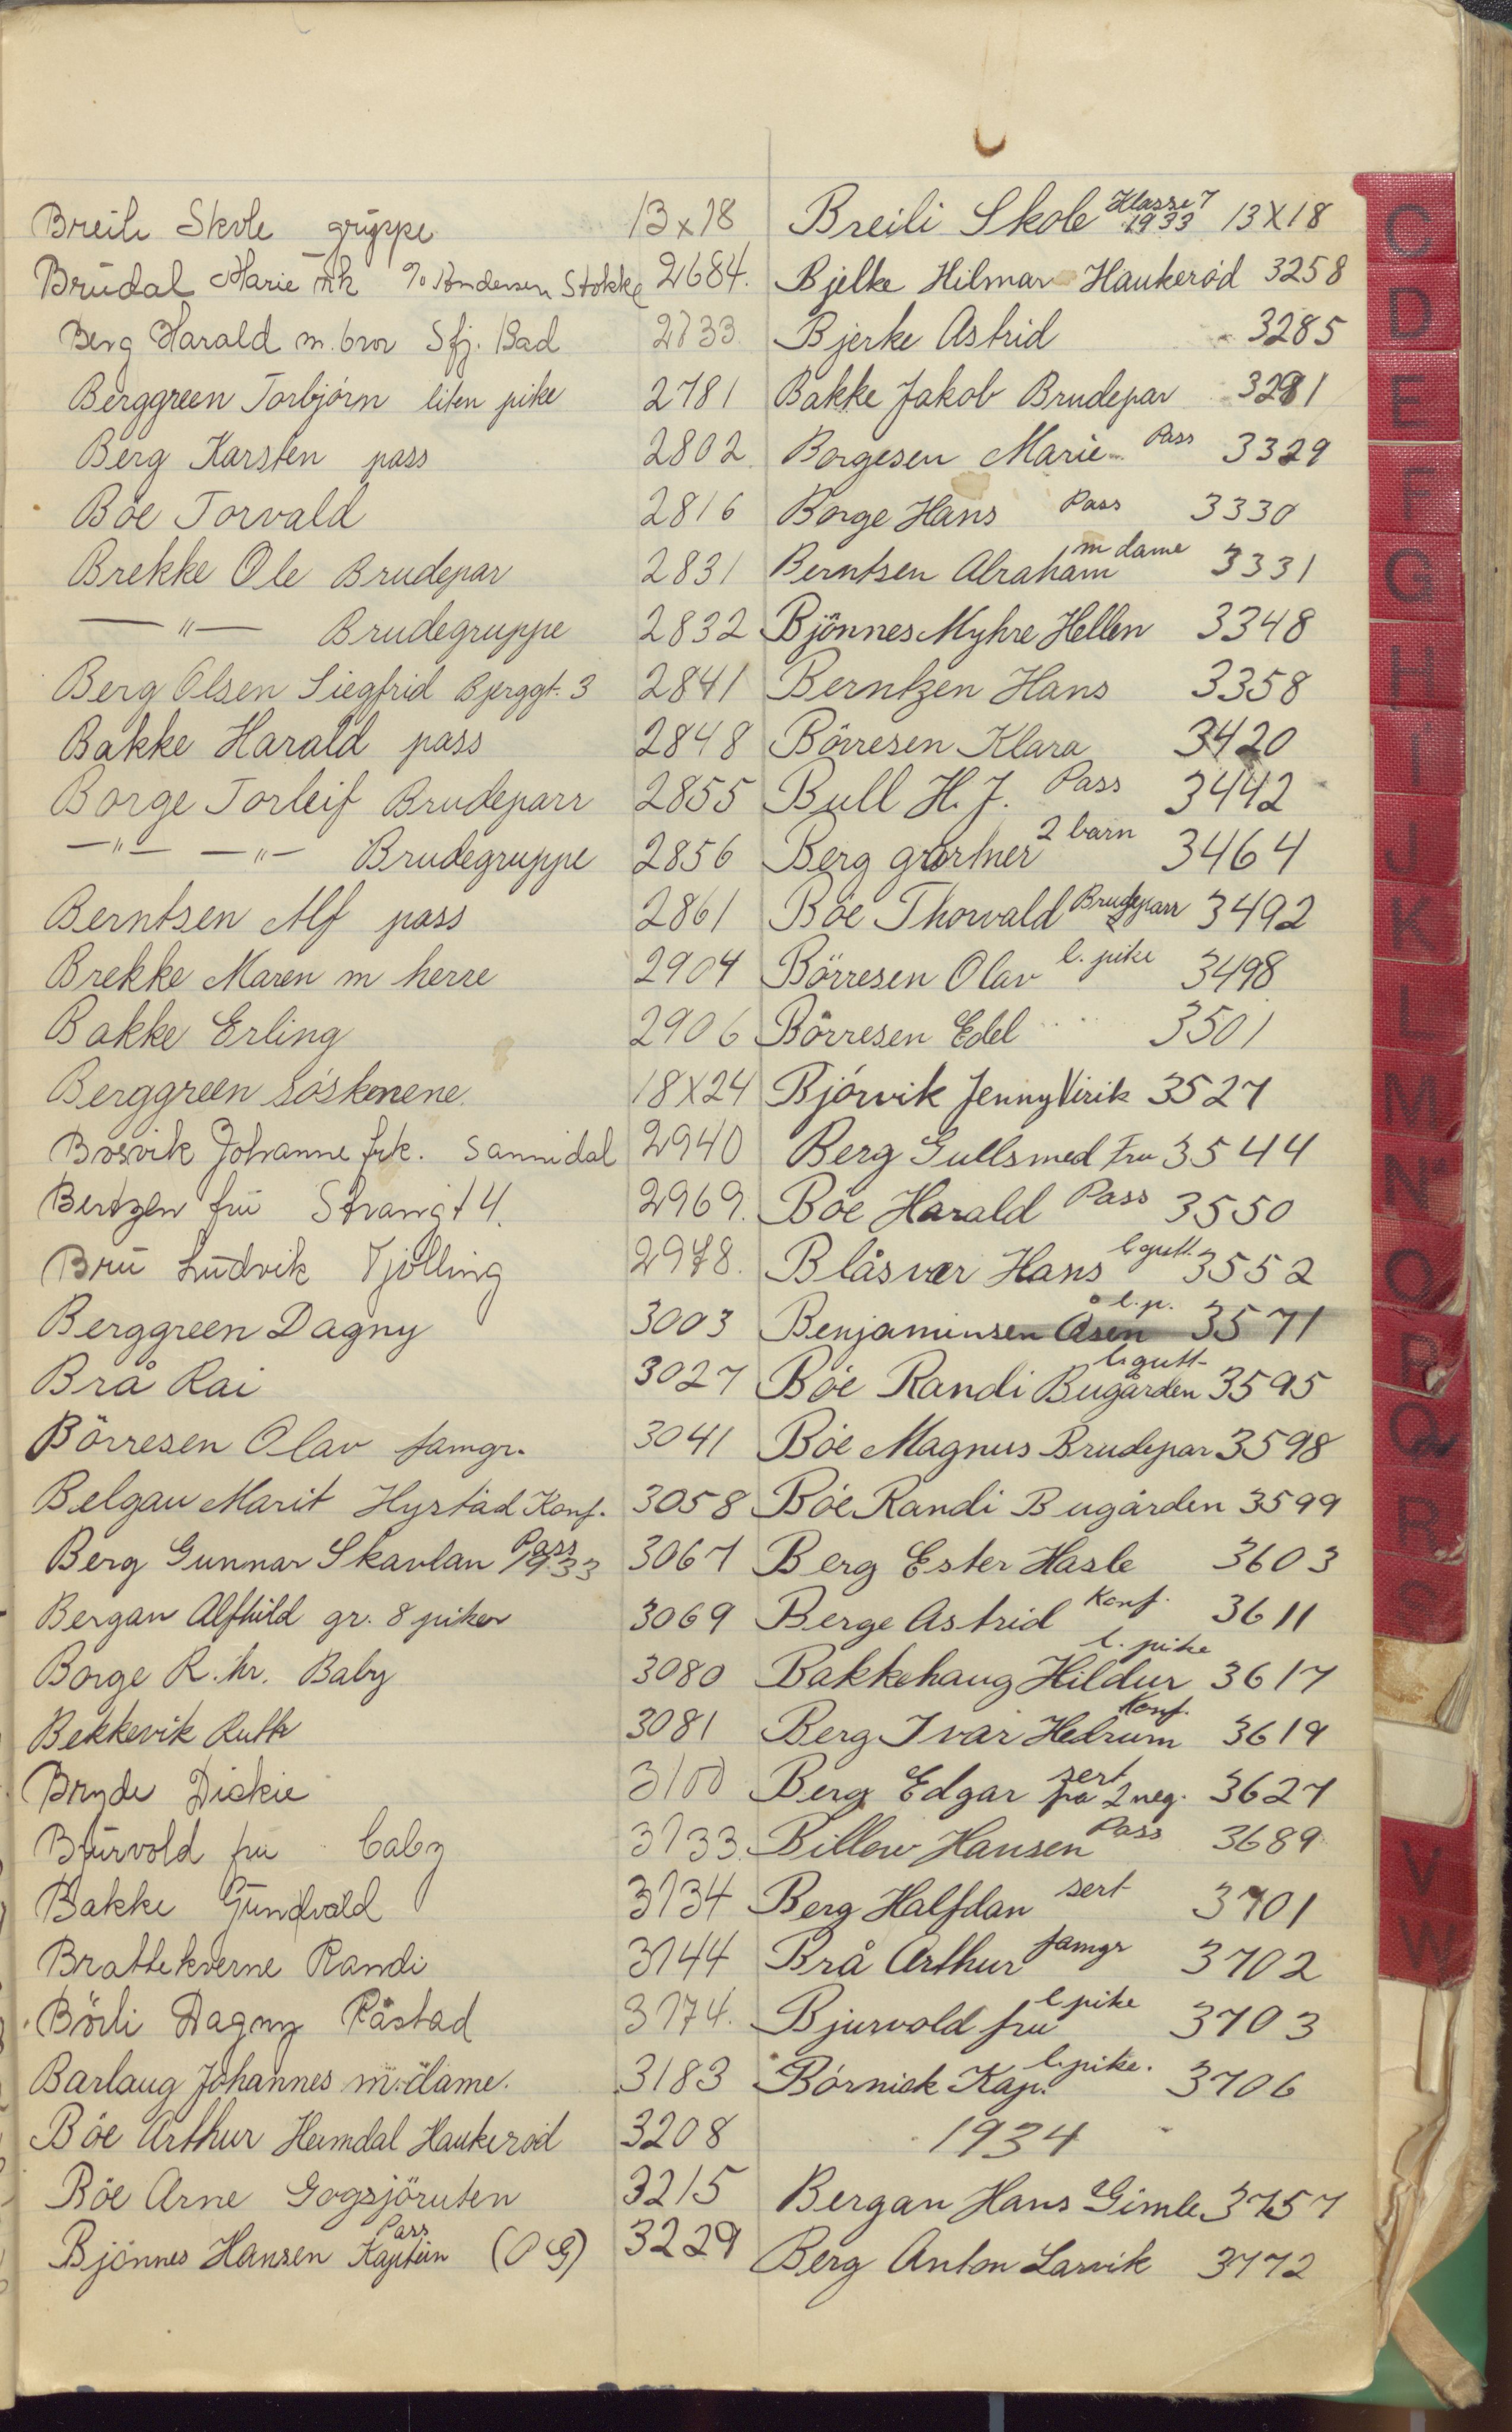 Breili Skole gruppe 13x18
Brudal Marie frk % Andersen Stokke 2684.
Berg Harald m. bror Sfj. Bad 2733
Berggreen Torbjörn liten pike 2781
Berg Karsten pass 2802
Böe Torvald 2816
Brekke Ole Brudepar 2831
—"— Brudegruppe 2832
Berg Olsen Siegfrid Bjerggt. 3 2841
Bakke Harald pass 2848
Borge Torleif Brudeparr 2855
—"— —"— Brudegruppe 2856
Berntsen Alf pass 2861
Brekke Maren m herre 2904
Bakke Erling 2906
Berggreen söskenene 18X24
Bosvik Johanne frk. Sannidal 2940
Bentzen fru Strangt 4. 2969.
Bru Ludvik Tjölling 2978.
Berggreen Dagny 3003
Brå Rai 3027
Börresen Olav famgr. 3041
Belgau Marit Hystad Konf. 3058
Berg Gunnar Skavlan Pass 1933 3067
Bergan Alfhild gr. 8 piker 3069
Borge R. hr. Baby 3080
Bekkevik Ruth 3081
Bryde Dickie 3100
Bjurvold fru baby 3133.
Bakke Gundvald 3134
Brattekverne Randi 3144
Börli Dagny Råstad 3174.
Barlaug Johannes m. dame. 3183
Böe Arthur Heimdal Haukeröd 3208
Böe Arne Gogsjöruten 3215
Bjönnes Hansen Pass Kaptein (O G) 3229
Breili Skole Klasse 7 1933 13X18
Bjelke Hilmar Haukeröd 3258
Bjerke Astrid 3285
Bakke Jakob Brudepar 3291
Borgesen Marie Pass 3329
Borge Hans Pass 3330
Berntsen Abraham m dame 3331
Bjönnes Myhre Hellen 3348
Berntzen Hans 3358
Börresen Klara 3420
Bull H. J. Pass 3442
Berg gartner 2 barn 3464
Böe Thorvald Brudeparr 3492
Börresen Olav l. pike 3498
Börresen Edel 3501
Bjórvik Jenny Virik 3527
Berg Gullsmed Fru 3544
Böe Harald Pass 3550
Blåsvær Hans l. gutt 3552
Benjaminsen Åsen l.p. 3571
Böe Randi Bugården l. gutt 3595
Böe Magnus Brudepar 3598
Böe Randi Bugården 3599
Berg Ester Hasle 3603
Berge Astrid Konf. 3611
Bakkehaug Hildur l. pike 3617
Berg Ivar Hedrum Konf. 3619
Berg Edgar sert fra 2 neg. 3627
Billow Hansen Pass 3689
Berg Halfdan sert 3701
Brå Arthur famgr 3702
Bjurvold fru l. pike 3703
Börnick Kap. l. pike. 3706
1934
Bergan Hans Gimle 3757
Berg Anton Larvik 3772
C
D
E
F
G
H
I
J
K
L
M
N
O
P
Q
R
S
V
W